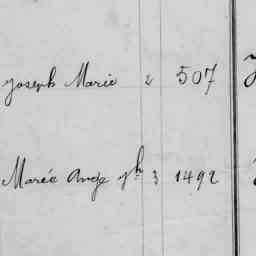 Joseph Marie 2 507
Marie Ange Jh 3 1492